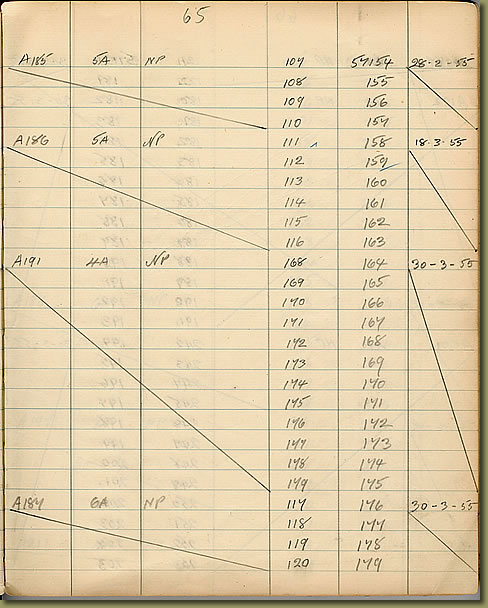 65
A185 5A NP 107 57154 28-2-55
108 155
109 156
110 157
A186 5A NP 111 158 18-3-55
112 159
113 160
114 161
115 162
116 163
A191 4A NP 168 164 30-3-55
169 165
170 166
171 167
172 168
173 169
174 170
175 171
176 172
177 173
178 174
179 175
A187 6A NP 117 176 30-3-55
118 177
119 178
120 179